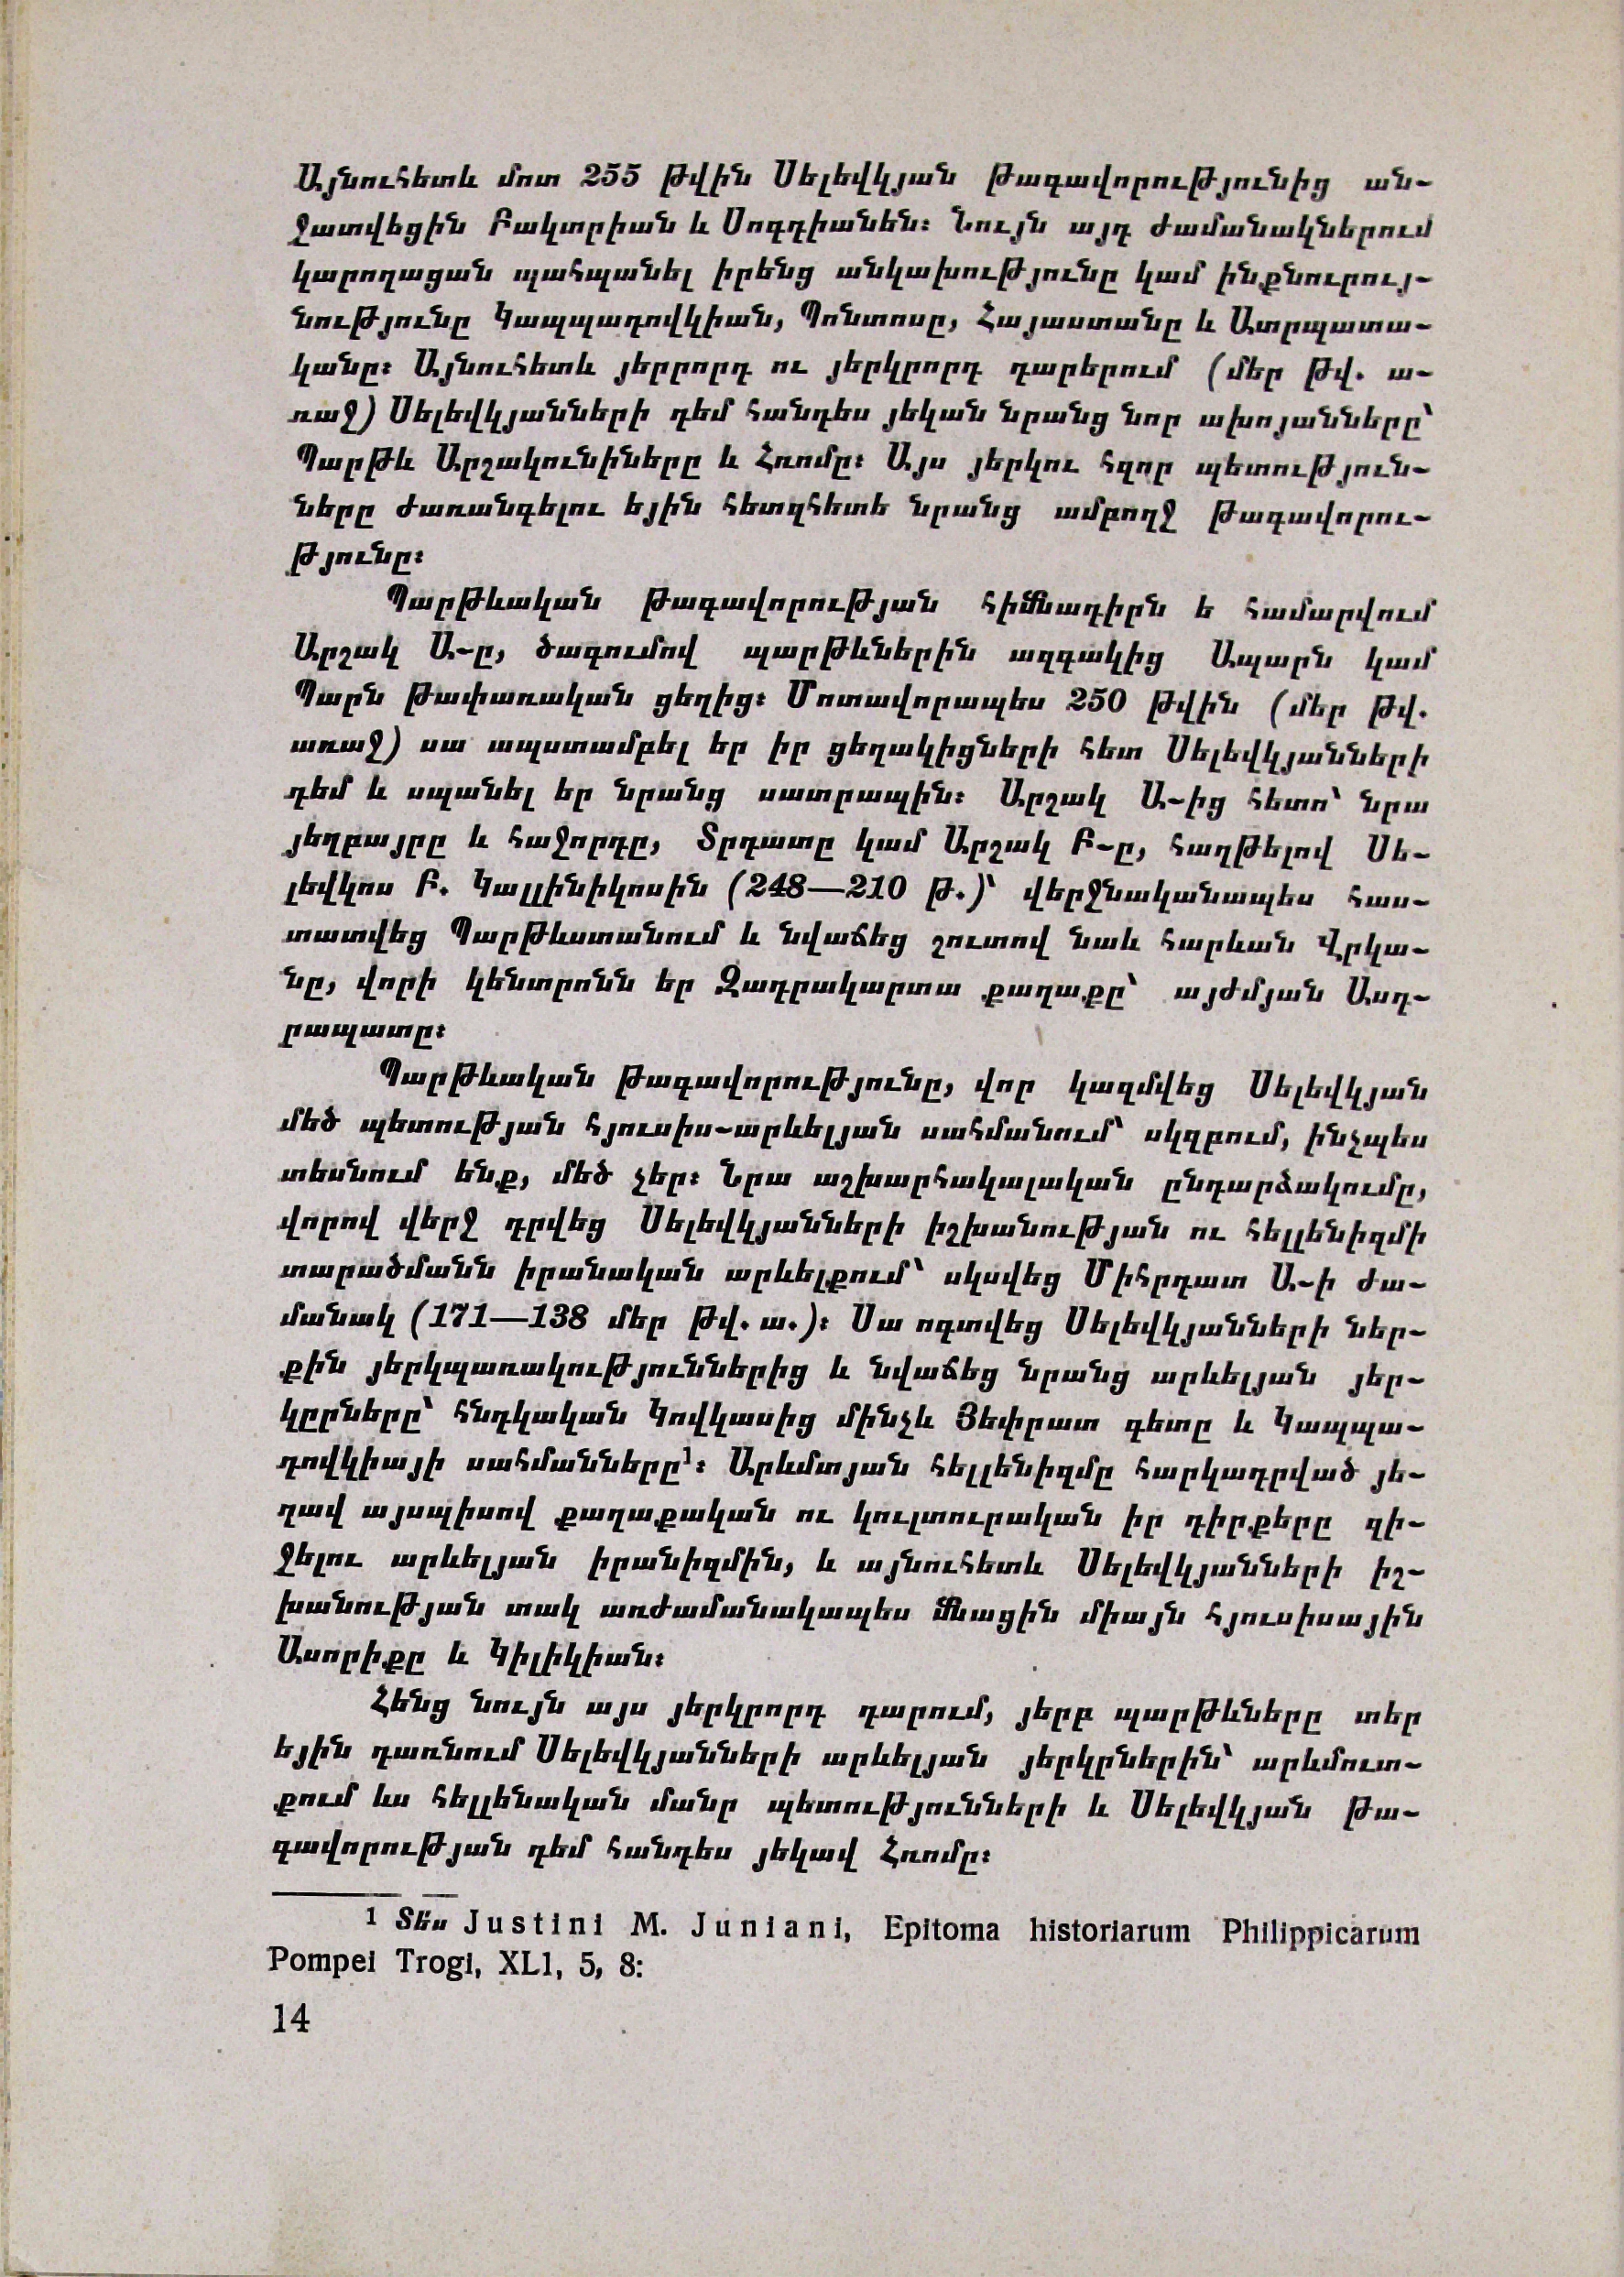 Այնուհետև մոտ 255 թվին Սելեվկյան թագավորությունից ան-
ջատվեցին Բակտրիան և Սոգդիանեն։ Նույն այդ ժամանակներում
կարողացան պահպանել իրենց անկախությունը կամ ինքնուրույ-
նությունը Կապպադովկիան, Պոնտոսը, Հայաստանը և Ատրպատա-
կանը։ Այնուհետև յերրորդ ու յերկրորդ դարերում (մեր թվ. ա-
ռաջ) Սելեվկյանների դեմ հանդես յեկան նրանց նոր ախոյանները՝
Պարթև Արշակունիները և Հռոմը։ Այս յերկու հզոր պետություն-
ները ժառանգելու եյին հետզհետե նրանց ամբողջ թագավորու-
թյունը։
Պարթևական թագավորության հիմնադիրն ե համարվում
Արշակ Ա-ը, ծագումով պարթևներին ազգակից Ապարն կամ
Պարն թափառական ցեղից։ Մոտավորապես 250 թվին (մեր թվ.
առաջ) սա ապստամբել եր իր ցեղակիցների հետ Սելեվկյանների
դեմ և սպանել եր նրանց սատրապին։ Արշակ Ա-ից հետո՝ նրա
յեղբայրը և հաջորդը, Տրդատը կամ Արշակ Բ-ը, հաղթելով Սե-
լեվկոս Բ. Կալլինիկոսին (248—210 թ.)՝ վերջնականապես հաս-
տատվեց Պարթևստանում և նվաճեց շուտով նաև հարևան Վրկա-
նը, վորի կենտրոնն եր Զադրակարտա քաղաքը՝ այժմյան Ասդ-
րապատը։
Պարթևական թագավորությունը, վոր կազմվեց Սելեվկյան
մեծ պետության հյուսիս-արևելյան սահմանում՝ սկզբում, ինչպես
տեսնում ենք, մեծ չեր։ Նրա աշխարհակալական ընդարձակումը,
վորով վերջ դրվեց Սելեվկյանների իշխանության ու հելլենիզմի
տարածմանն իրանական արևելքում՝ սկսվեց Միհրդատ Ա-ի ժա-
մանակ (171—138 մեր թվ. ա.)։ Սա ոգտվեց Սելեվկյանների ներ-
քին յերկպառակություններից և նվաճեց նրանց արևելյան յեր-
կըրները՝ հնդկական Կովկասից մինչև Յեփրատ գետը և Կապպա-
դովկիայի սահմանները¹։ Արևմտյան հելլենիզմը հարկադրված յե-
ղավ այսպիսով քաղաքական ու կուլտուրական իր դիրքերը զի-
ջելու արևելյան իրանիզմին, և այնուհետև Սելեվկյանների իշ-
խանության տակ առժամանակապես մնացին միայն հյուսիսային
Ասորիքը և Կիլիկիան։
Հենց նույն այս յերկրորդ դարում, յերբ պարթևները տեր
եյին դառնում Սելեվկյանների արևելյան յերկրներին՝ արևմուտ-
քում ևս հելլենական մանր պետությունների և Սելեվկյան թա-
գավորության դեմ հանդես յեկավ Հռոմը։
1 Տե՛ս Justini M. Juniani, Epitoma historiarum Philippicarum
Pompei Trogi, XL1, 5, 8:
14